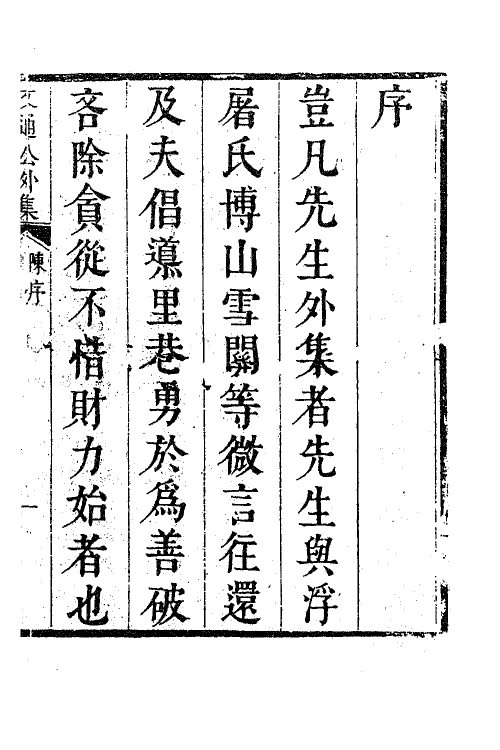 序
豈凡先生外集者先生與浮
屠氏博山雪關等微言往還
及夫倡導里巷勇於爲善破
吝除貪從不惜財力始者也
通公外集
陳序
一